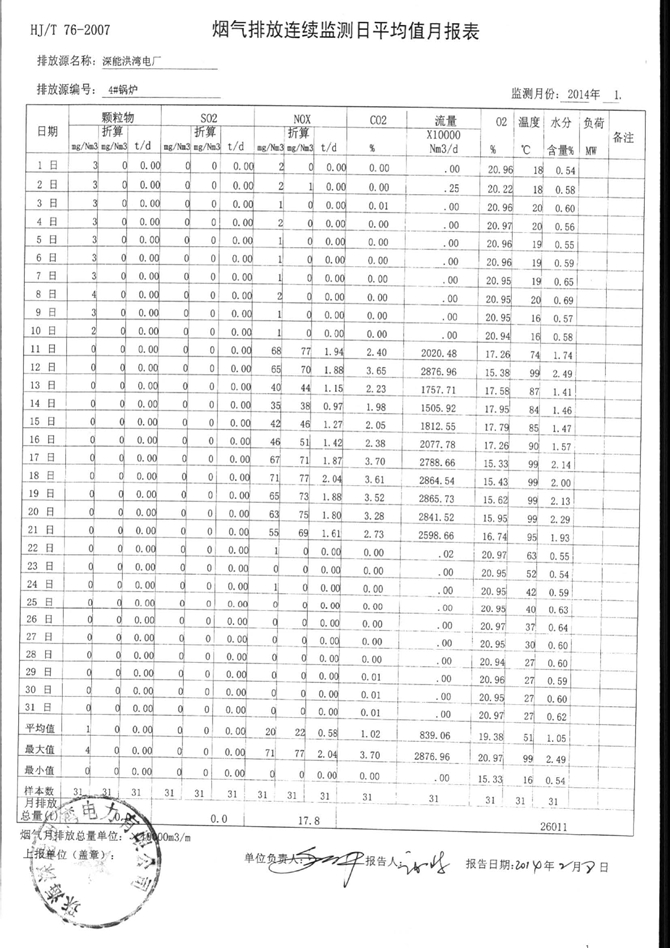 HJ/T 76-2007 烟气排放连续监测日平均值月报表
排放源名称： 深能洪湾电厂
排放源编号： 4#锅炉 监测月份: 2014年 1.
日期 颗粒物 SO2 NOX CO2 流量 O2 温度 水分 负荷 备注
折算 折算 折算 X10000
mg/Nm3 mg/Nm3 t/d mg/Nm3 mg/Nm3 t/d mg/Nm3 mg/Nm3 t/d % Nm3/d % ℃ 含量% MW
1 日 3 0 0.00 0 0 0.00 2 0 0.00 0.00 .00 20.96 18 0.54
2 日 3 0 0.00 0 0 0.00 2 1 0.00 0.00 .25 20.22 18 0.58
3 日 3 0 0.00 0 0 0.00 1 0 0.00 0.01 .00 20.96 20 0.60
4 日 3 0 0.00 0 0 0.00 2 0 0.00 0.00 .00 20.97 20 0.56
5 日 3 0 0.00 0 0 0.00 1 0 0.00 0.00 .00 20.96 19 0.55
6 日 3 0 0.00 0 0 0.00 1 0 0.00 0.00 .00 20.96 19 0.59
7 日 3 0 0.00 0 0 0.00 1 0 0.00 0.00 .00 20.95 19 0.65
8 日 4 0 0.00 0 0 0.00 2 0 0.00 0.00 .00 20.95 20 0.69
9 日 3 0 0.00 0 0 0.00 1 0 0.00 0.00 .00 20.95 16 0.57
10 日 2 0 0.00 0 0 0.00 1 0 0.00 0.00 .00 20.94 16 0.58
11 日 0 0 0.00 0 0 0.00 68 77 1.94 2.40 2020.48 17.26 74 1.74
12 日 0 0 0.00 0 0 0.00 65 70 1.88 3.65 2876.96 15.38 99 2.49
13 日 0 0 0.00 0 0 0.00 40 44 1.15 2.23 1757.71 17.58 87 1.41
14 日 0 0 0.00 0 0 0.00 35 38 0.97 1.98 1505.92 17.95 84 1.46
15 日 0 0 0.00 0 0 0.00 42 46 1.27 2.05 1812.55 17.79 85 1.47
16 日 0 0 0.00 0 0 0.00 46 51 1.42 2.38 2077.78 17.26 90 1.57
17 日 0 0 0.00 0 0 0.00 67 71 1.87 3.70 2788.66 15.33 99 2.14
18 日 0 0 0.00 0 0 0.00 71 77 2.04 3.61 2864.54 15.43 99 2.00
19 日 0 0 0.00 0 0 0.00 65 73 1.88 3.52 2865.73 15.62 99 2.13
20 日 0 0 0.00 0 0 0.00 63 75 1.80 3.28 2841.52 15.95 99 2.29
21 日 0 0 0.00 0 0 0.00 55 69 1.61 2.73 2598.66 16.74 95 1.93
22 日 0 0 0.00 0 0 0.00 1 0 0.00 0.00 .02 20.97 63 0.55
23 日 0 0 0.00 0 0 0.00 0 0 0.00 0.00 .00 20.95 52 0.54
24 日 0 0 0.00 0 0 0.00 1 0 0.00 0.00 .00 20.95 42 0.59
25 日 0 0 0.00 0 0 0.00 0 0 0.00 0.00 .00 20.95 40 0.63
26 日 0 0 0.00 0 0 0.00 0 0 0.00 0.00 .00 20.97 37 0.64
27 日 0 0 0.00 0 0 0.00 0 0 0.00 0.00 .00 20.95 30 0.60
28 日 0 0 0.00 0 0 0.00 0 0 0.00 0.00 .00 20.94 27 0.60
29 日 0 0 0.00 0 0 0.00 0 0 0.00 0.01 .00 20.96 27 0.59
30 日 0 0 0.00 0 0 0.00 0 0 0.00 0.01 .00 20.95 27 0.60
31 日 0 0 0.00 0 0 0.00 0 0 0.00 0.01 .00 20.97 27 0.62
平均值 1 0 0.00 0 0 0.00 20 22 0.58 1.02 839.06 19.38 51 1.05
最大值 4 0 0.00 0 0 0.00 71 77 2.04 3.70 2876.96 20.97 99 2.49
最小值 0 0 0.00 0 0 0.00 0 0 0.00 0.00 .00 15.33 16 0.54
样本数 31 31 31 31 31 31 31 31 31 31 31 31 31 31
月排放
总量(t) 0. 0.0 17.8 26011
烟气月排放总量单位： X10000m3/m
上报单位（盖章）： 单位负责人: 报告人: 报告日期:2014年2月 日